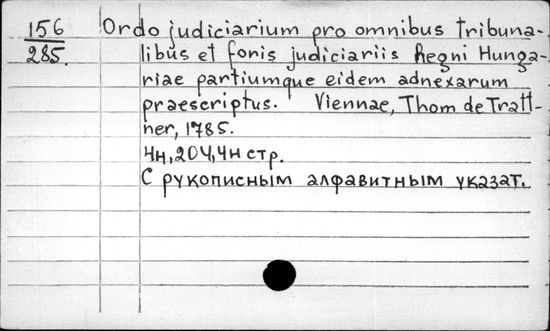 156
285.
Ordo judiciarium pro omnibus tribuna-
libus et foris judiciariis Regni Hunga-
riae partiumque eidem adnexarum
praescriptus. Viennae, Thom de Tratt-
ner, 1785.
4н, 204, 4н стр.
С рукописным алфавитным указат.